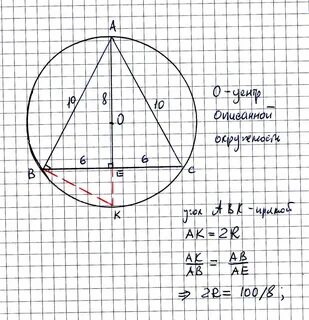 A
10
8
10
O
O - центр
описанной
окружности
6
6
B
E
C
K
угол ABK - прямой
AK = 2R
AK/AB = AB/AE
⇒ 2R = 100/8;